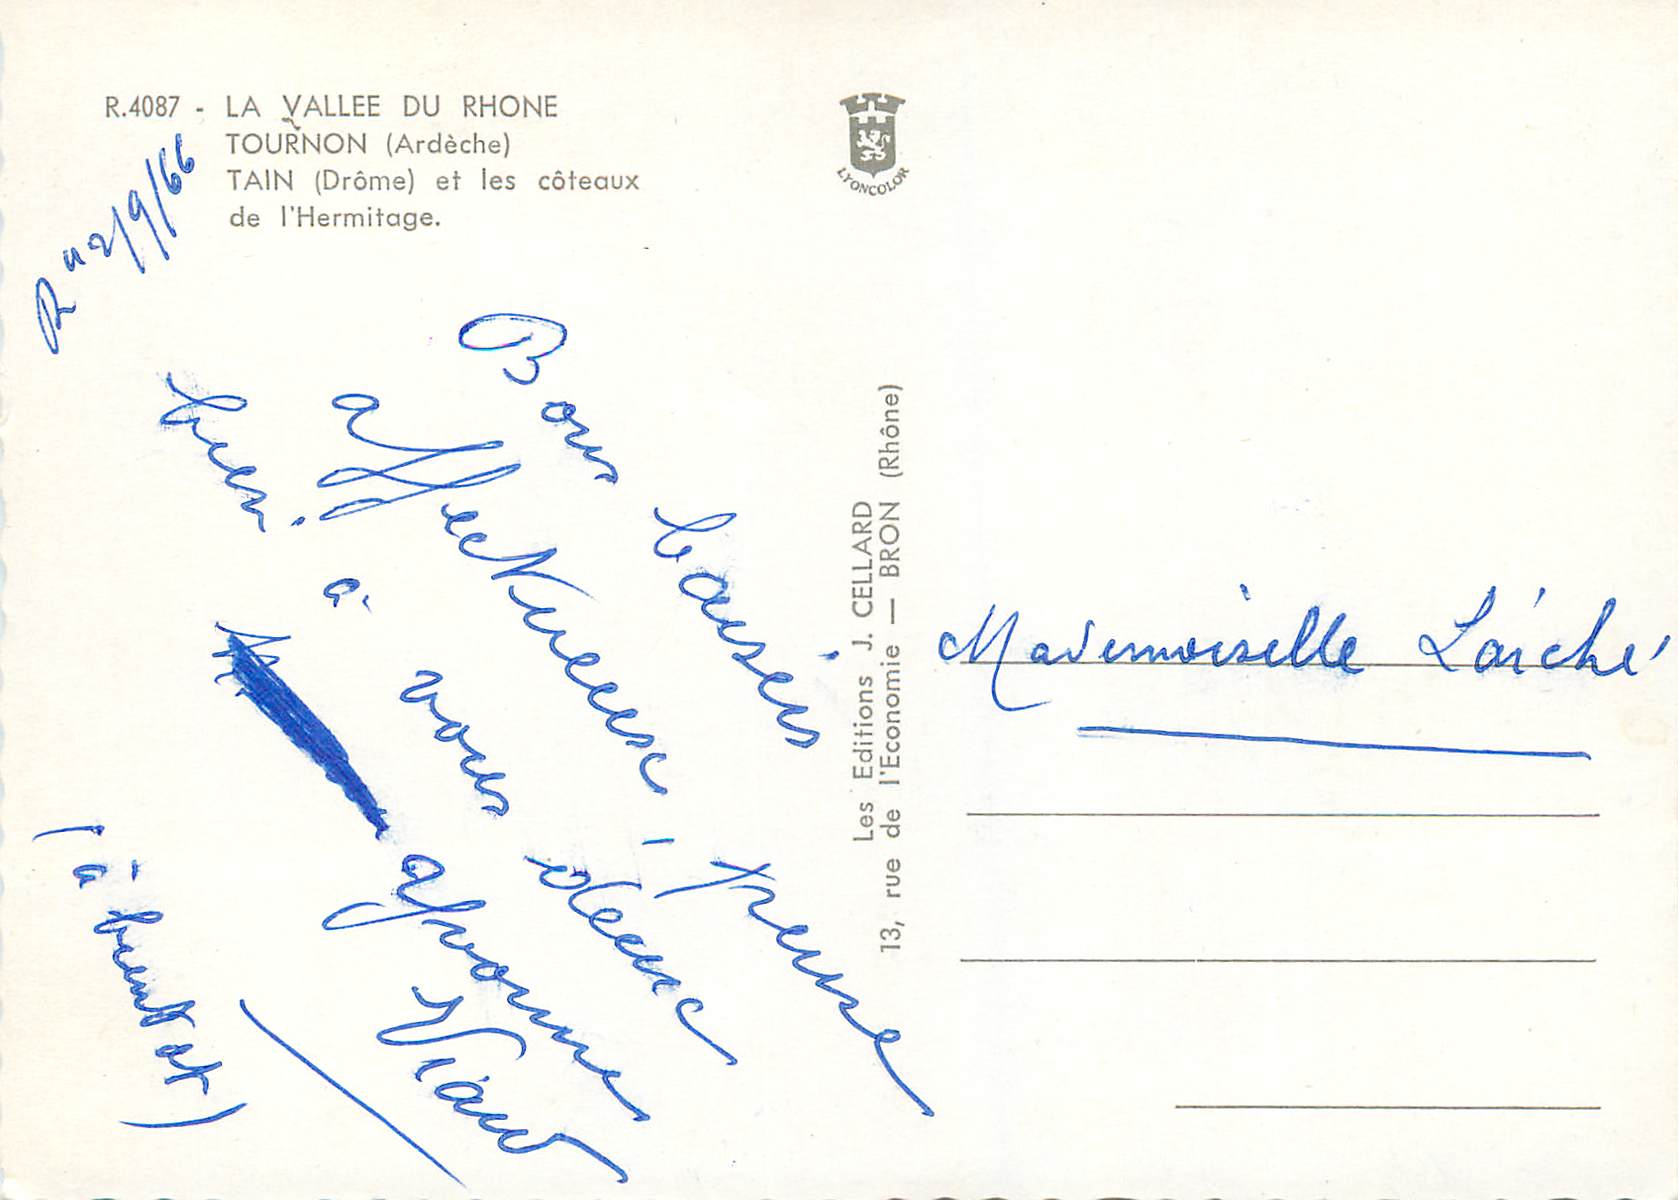 R.4087 - LA VALLEE DU RHONE
TOURNON (Ardèche)
TAIN (Drôme) et les côteaux
de l'Hermitage.
LYONCOLOR
2/9/66
Bons baisers
affectueuse pensée
bien à vous deux
Yvonne
Viaud
(à bientôt)
Les Editions J. CELLARD
13, rue de l'Economie — BRON (Rhône)
Mademoiselle Laiché